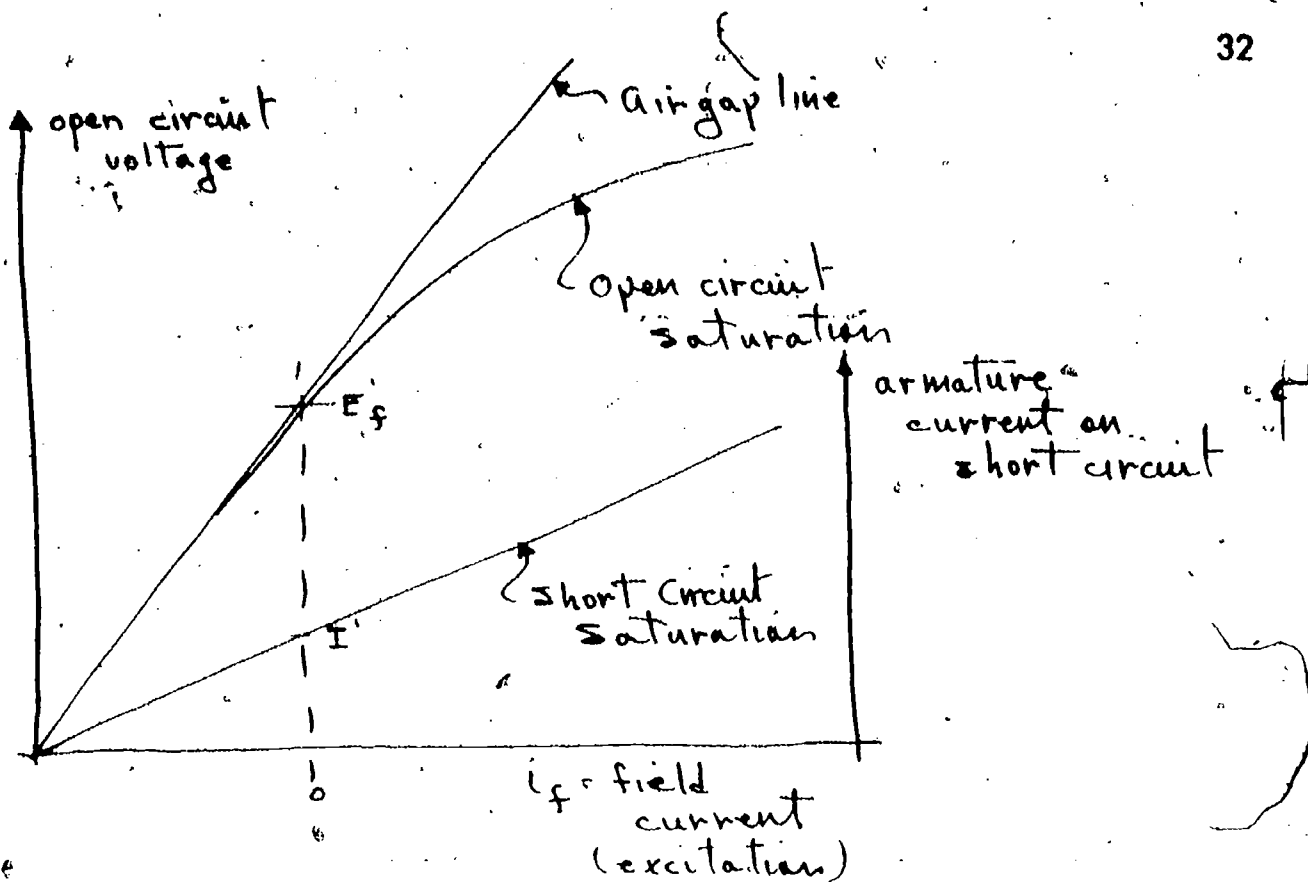 32
open circuit
voltage
Air gap line
open circuit
saturation
armature
current on
short circuit
E'f
short circuit
saturation
I'
o
if = field
current
(excitation)